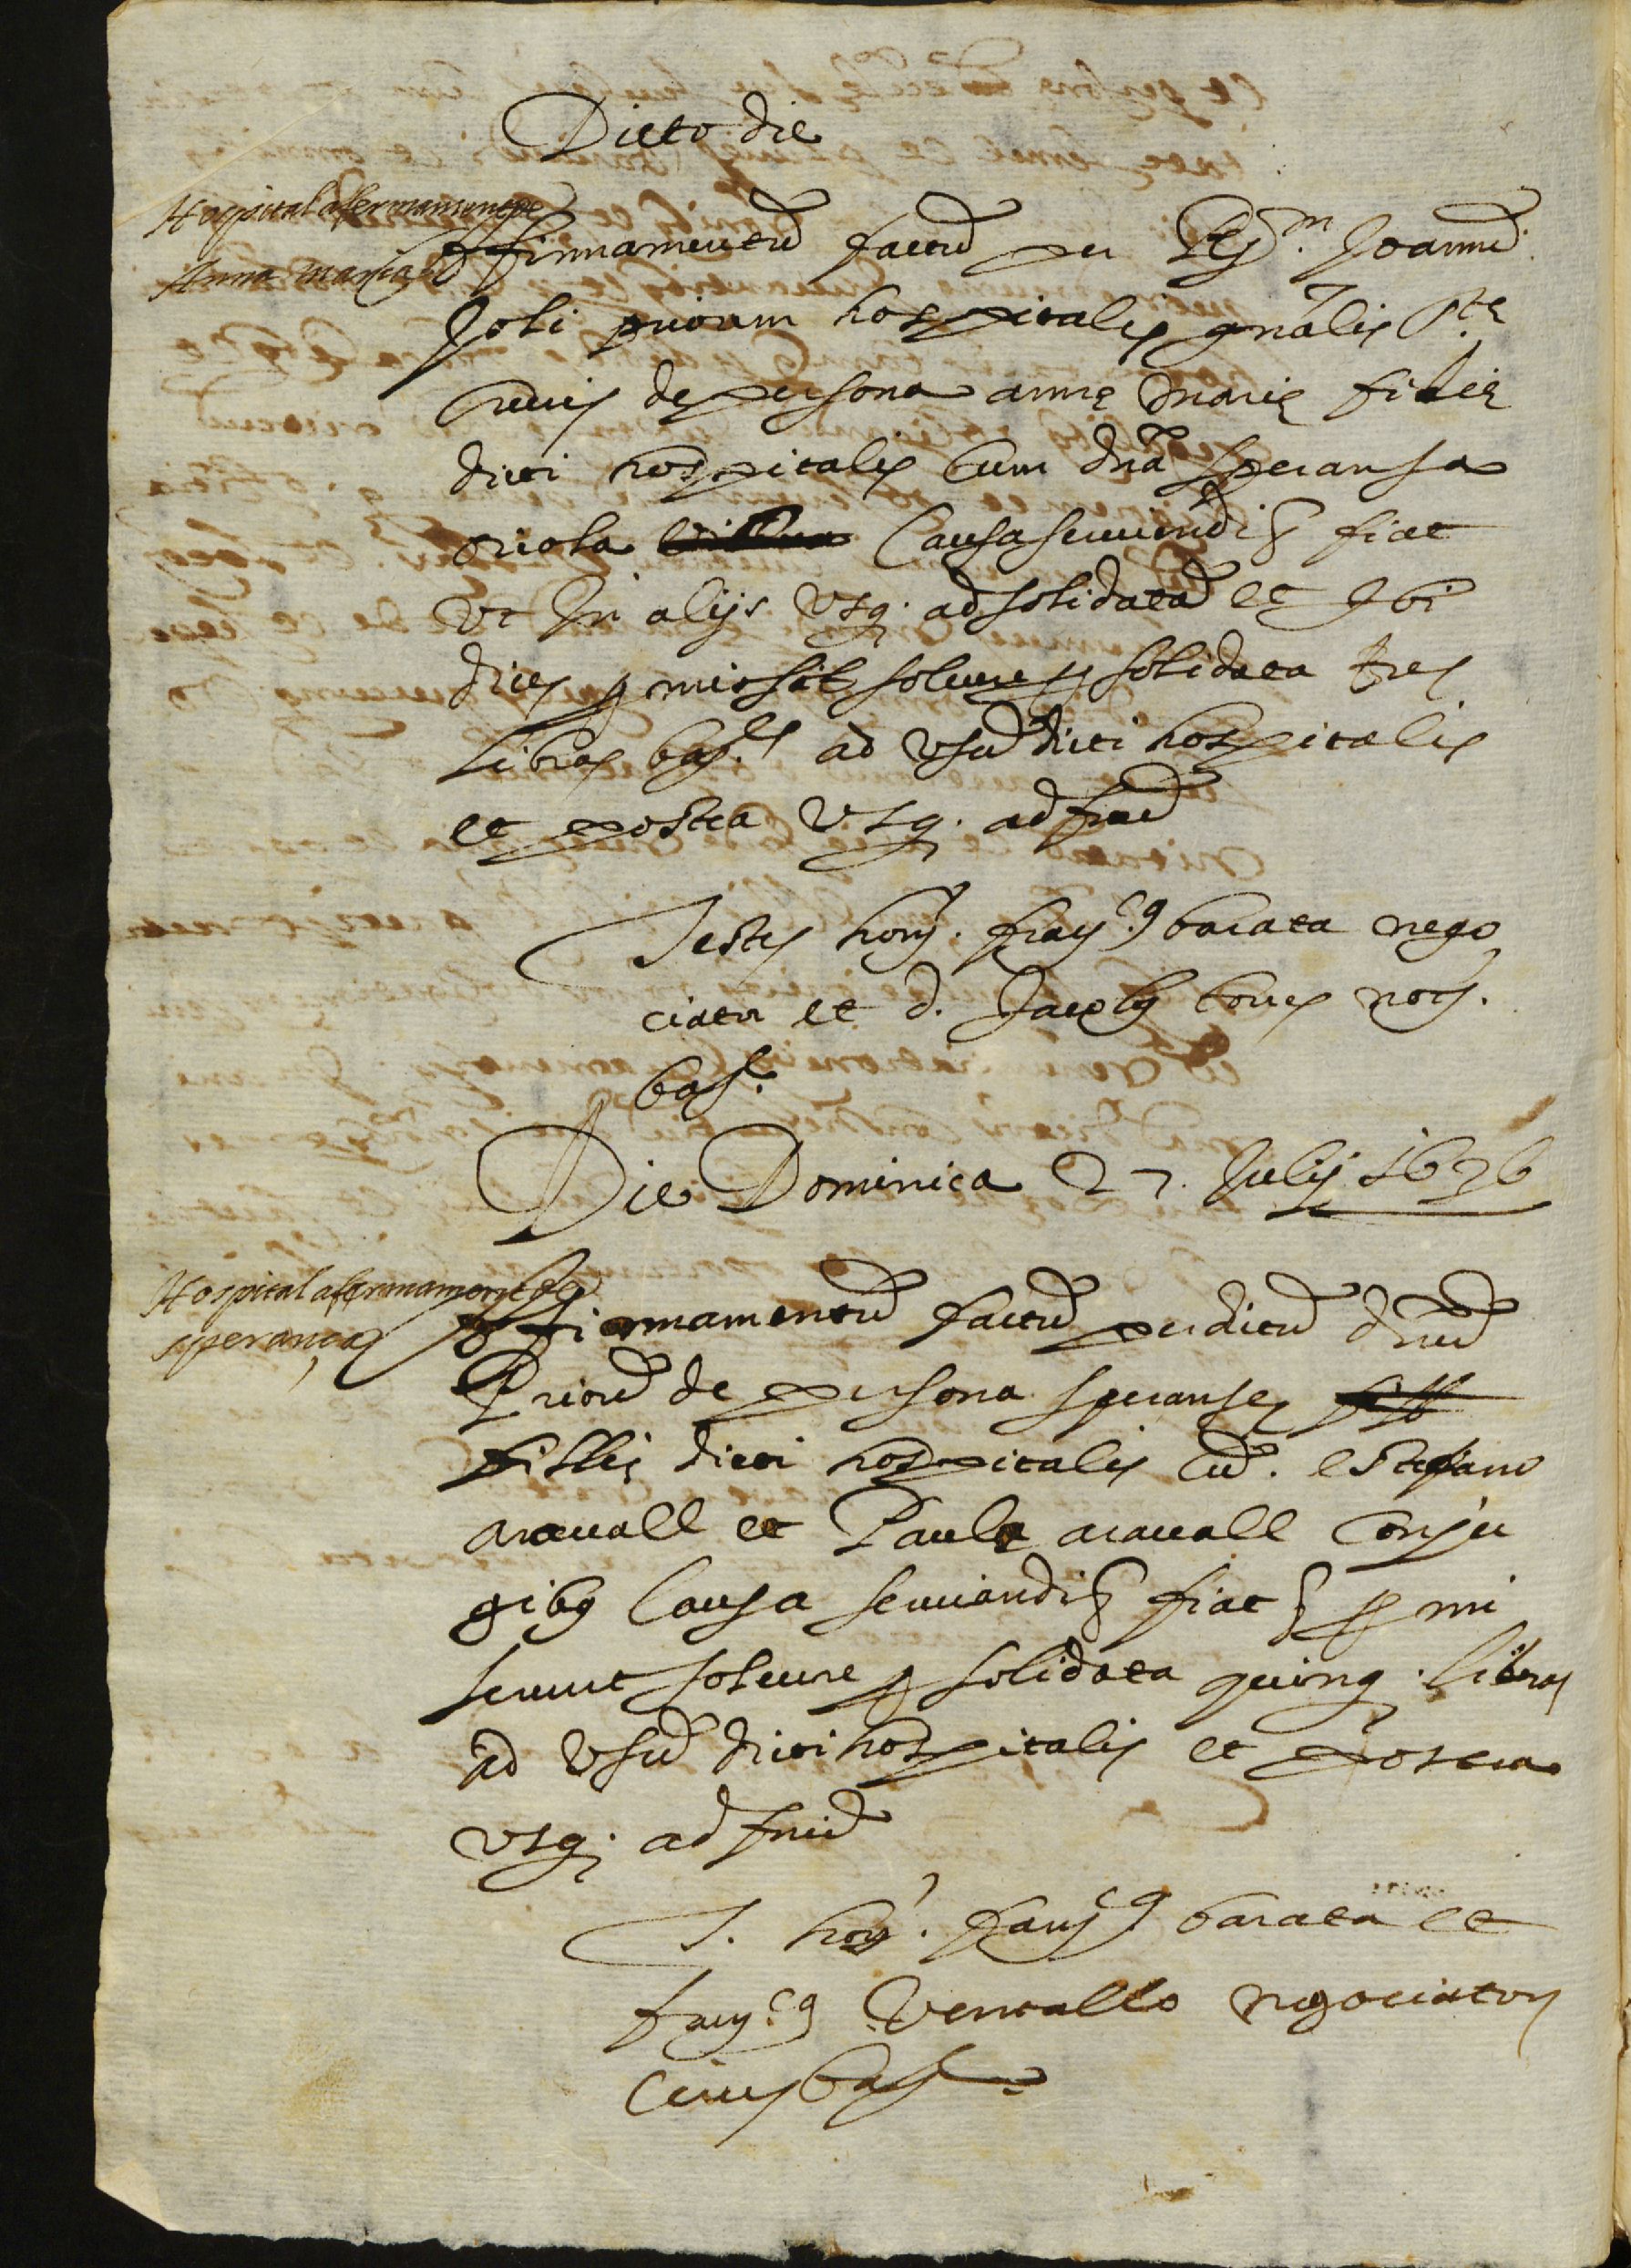 Dicto die
Hospital afermament de
Anna maria
Affirmamentũ factũ per Rd.m Joannẽ
Soli priorem hospitalis gñalis Ste
Crucis de persona anne Marie filie
dicti hospitalis cum dña speransa
oriola causa serviendi & fiat
ut In alijs usq. ad solidatã et Ibi
dies promissit solvere p solidata tres
libras bar. ad usũ dicti hospitalis
et postea usq. ad finẽ
Testes hon. franc.9 barata nego
ciator et d. Jacobus not.
bar.
Die Dominica 27. Julij 1636
Hospital afermament de
sperança
Affirmamentũ factũ per dictũ dnũ
Priorẽ de persona speranse
fillie dicti hospitalis cũ. estefano
aravall et Paula aravall conju
gibus causa serviendi & fiat & promi
serunt solvere p solidata quinq. libras
ad usũ dicti hospitalis et postea
usq. ad finẽ
T. hon. franc9 barata et
franc.9 Ventallo negociator
cives bar